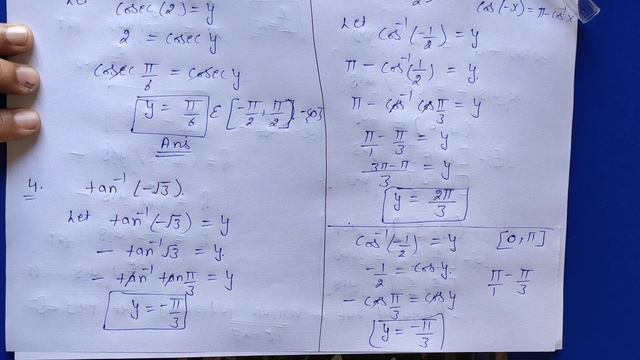 cosec⁻¹(2) = y
2 = cosec y
cosec π/6 = cosec y
y = π/6 ε [-π/2, π/2] - {0}
Ans
4. tan⁻¹(-√3).
Let tan⁻¹(-√3) = y
- tan⁻¹√3 = y.
- tan⁻¹ tan π/3 = y
y = -π/3
cos⁻¹(-x) = π - cos⁻¹x
Let cos⁻¹(-1/2) = y
π - cos⁻¹(1/2) = y.
π - cos⁻¹ cos π/3 = y
π/1 - π/3 = y
3π-π/3 = y
y = 2π/3
cos⁻¹(-1/2) = y [0, π]
-1/2 = cos y. π/1 - π/3
- cos π/3 = cos y
y = -π/3